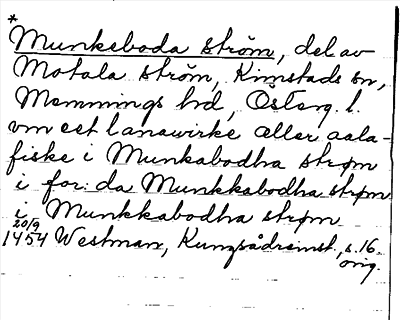 *
Munkeboda ström, del av
Motala ström, Kimstads sn,
Memmings hd, Österg. l.
vm eet lanawirke æller aala-
fiske i Munkabodha strøm
i for: da Munkkabodha strøm
i Munkkabodha strøm
20/9
1454 Westman, Kungsådreinst., s. 16.
orig.